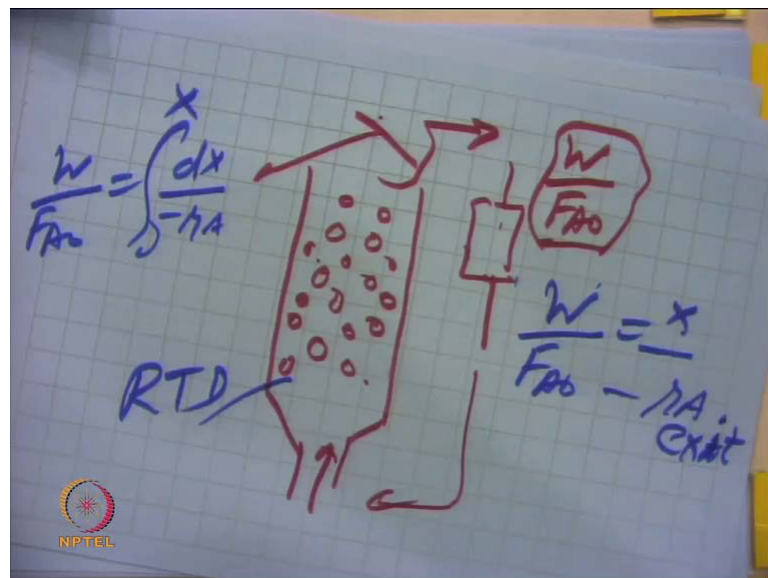 W/F_A0 = ∫ dx/-r_A
X
W/F_A0
W/F_A0 = x/-r_A exit
RTD
NPTEL